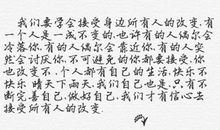 我们要学会接受身边所有人的改变.有
一个人是一成不变的.也许有的人偶尔会
冷落你.有的人偶尔会靠近你.有的人突
然会讨厌你.不可避免的你都要接受.你
也改变不.个人都有自己的生活.快乐不
快乐 晴天下雨天.我们自己也是.只有不
断完善自己.做好自己.我们才有信心去
接受所有人的改变.